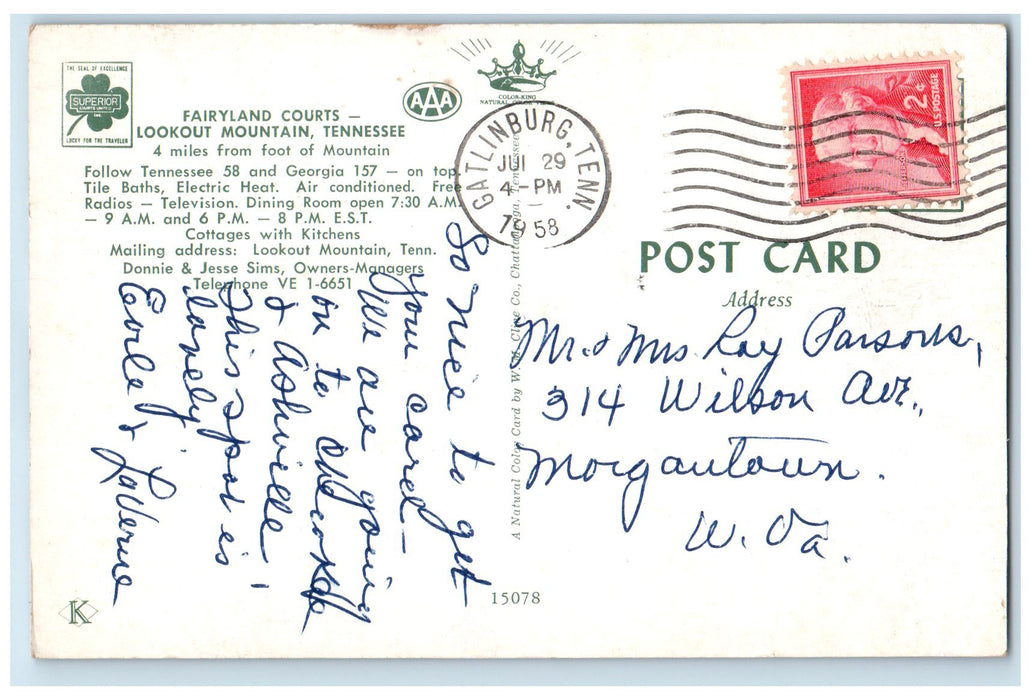 THE SEAL OF EXCELLENCE
SUPERIOR
COURTS UNITED
INC.
LUCKY FOR THE TRAVELER
AAA
COLOR-KING
NATURAL COLOR
FAIRYLAND COURTS —
LOOKOUT MOUNTAIN, TENNESSEE
4 miles from foot of Mountain
Follow Tennessee 58 and Georgia 157 — on top.
Tile Baths, Electric Heat. Air conditioned. Free
Radios — Television. Dining Room open 7:30 A.M.
— 9 A.M. and 6 P.M. — 8 P.M. E.S.T.
Cottages with Kitchens
Mailing address: Lookout Mountain, Tenn.
Donnie & Jesse Sims, Owners-Managers
Telephone VE 1-6651
So nice to get
your card—
We are going
on to Cherokee
& Ashville!
This spot is
lovely!
& LaVerne
K
15078
A Natural Color Card by W. M. Cline Co., Chattanooga, Tennessee
GATLINBURG, TENN.
JUL 29
4-PM
1958
2¢
U.S. POSTAGE
JEFFERSON
POST CARD
Address
Mr. & Mrs. Ray Parsons,
314 Wilson Ave.,
Morgantown.
W. Va.